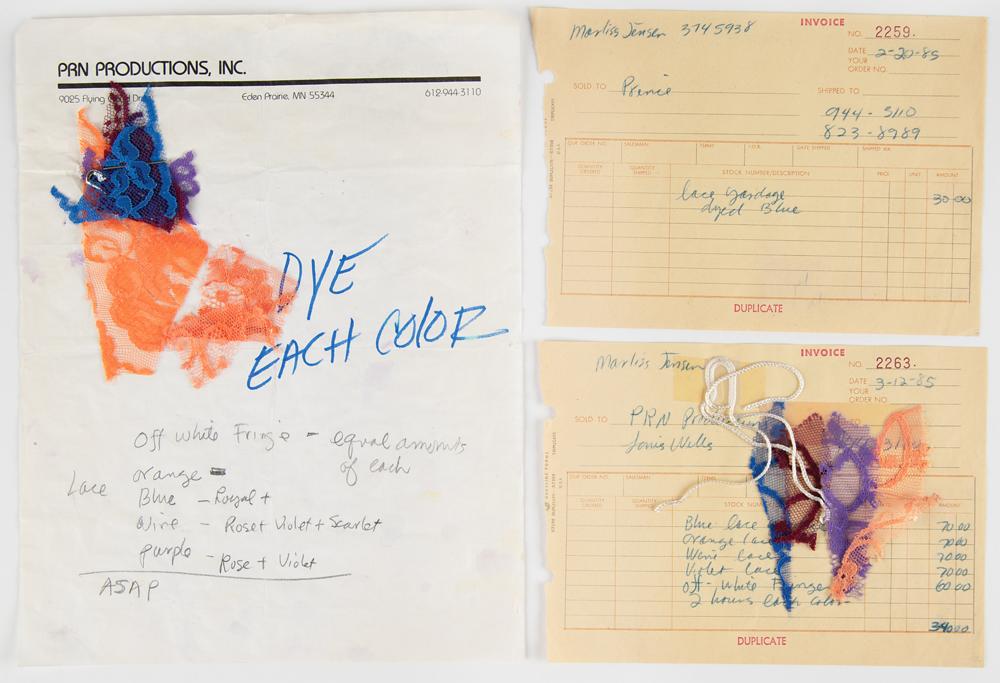 PRN PRODUCTIONS, INC.
9025 Flying Dr. Eden Prairie, MN 55344 612-944-3110
DYE
EACH COLOR
Off white Fringe - equal amounts
of each
Lace
orange -
Blue - Royal +
Wine - Rose + Violet + Scarlet
purple - Rose + Violet
ASAP
Marliss Jensen 3745938
INVOICE
NO. 2259.
DATE 2-20-85
YOUR
ORDER NO.
SOLD TO Prince
SHIPPED TO
944-3110
823-8989
OUR ORDER NO. SALESMAN TERMS F.O.B. DATE SHIPPED SHIPPED VIA
QUANTITY ORDERED QUANTITY SHIPPED STOCK NUMBER/DESCRIPTION PRICE UNIT AMOUNT
lace yardage 30.00
dyed Blue
DUPLICATE
Marliss Jensen
INVOICE
NO. 2263.
DATE 3-12-85
YOUR
ORDER NO.
SOLD TO PRN
Louis Wells
SALESMAN
QUANTITY ORDERED QUANTITY SHIPPED AMOUNT
Blue lace 70.00
Orange lace 70.00
Wine lace 70.00
Violet lace 70.00
Off-white Fringe 60.00
2 hours each color
340.00
DUPLICATE